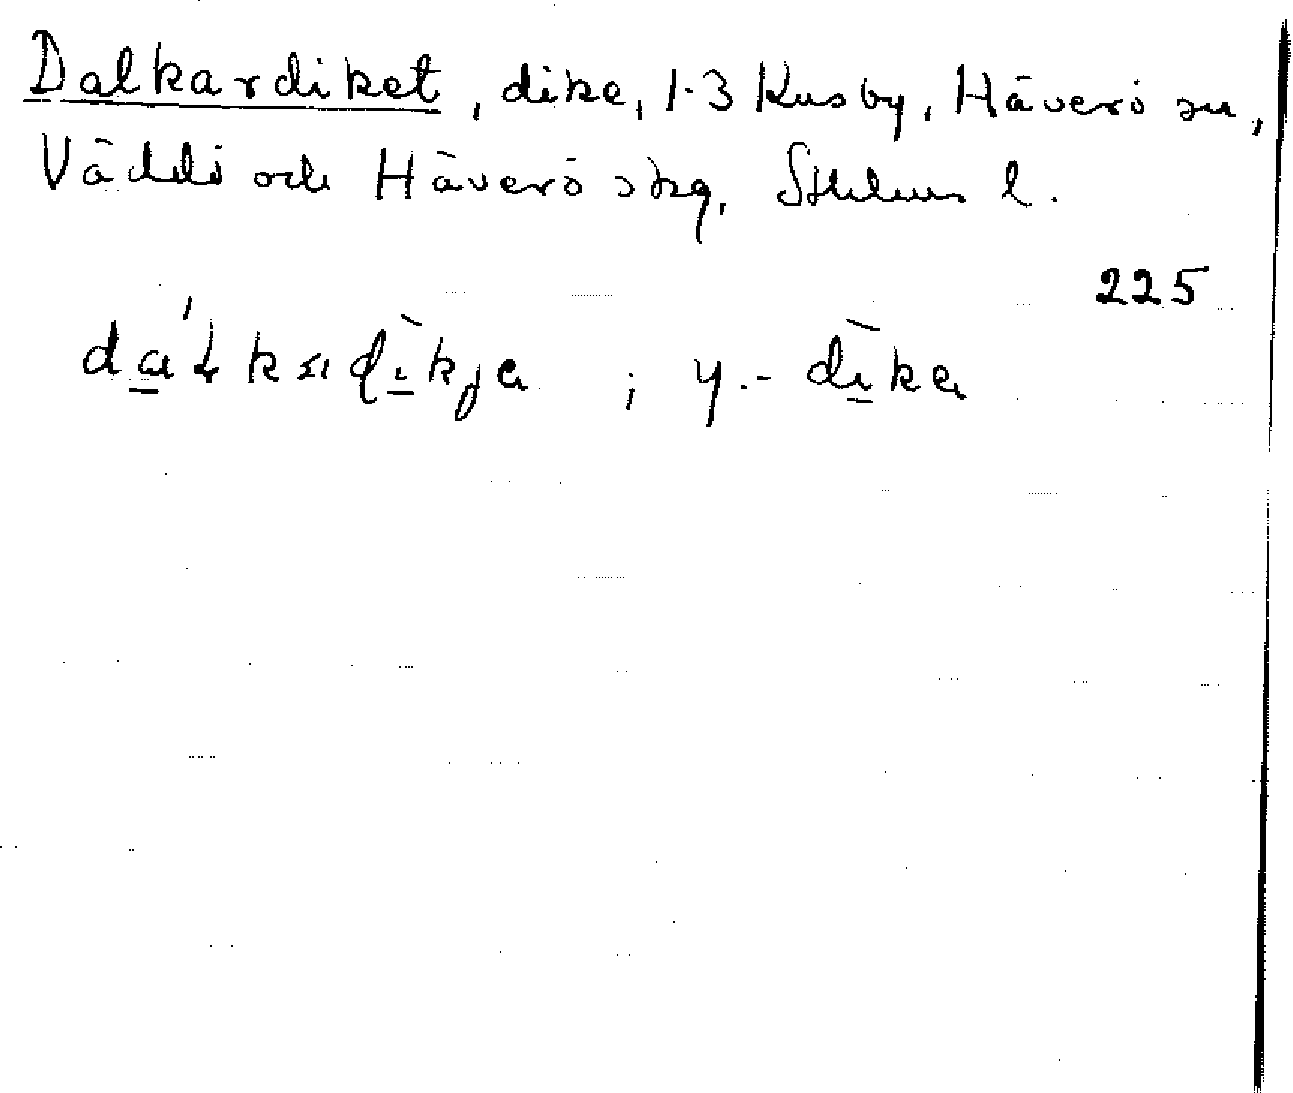 Dalkardiket, dike, 1-3 Kusby, Häverö sn,
Väddö och Häverö skg, Sthlms l.
225
; y.- dìka